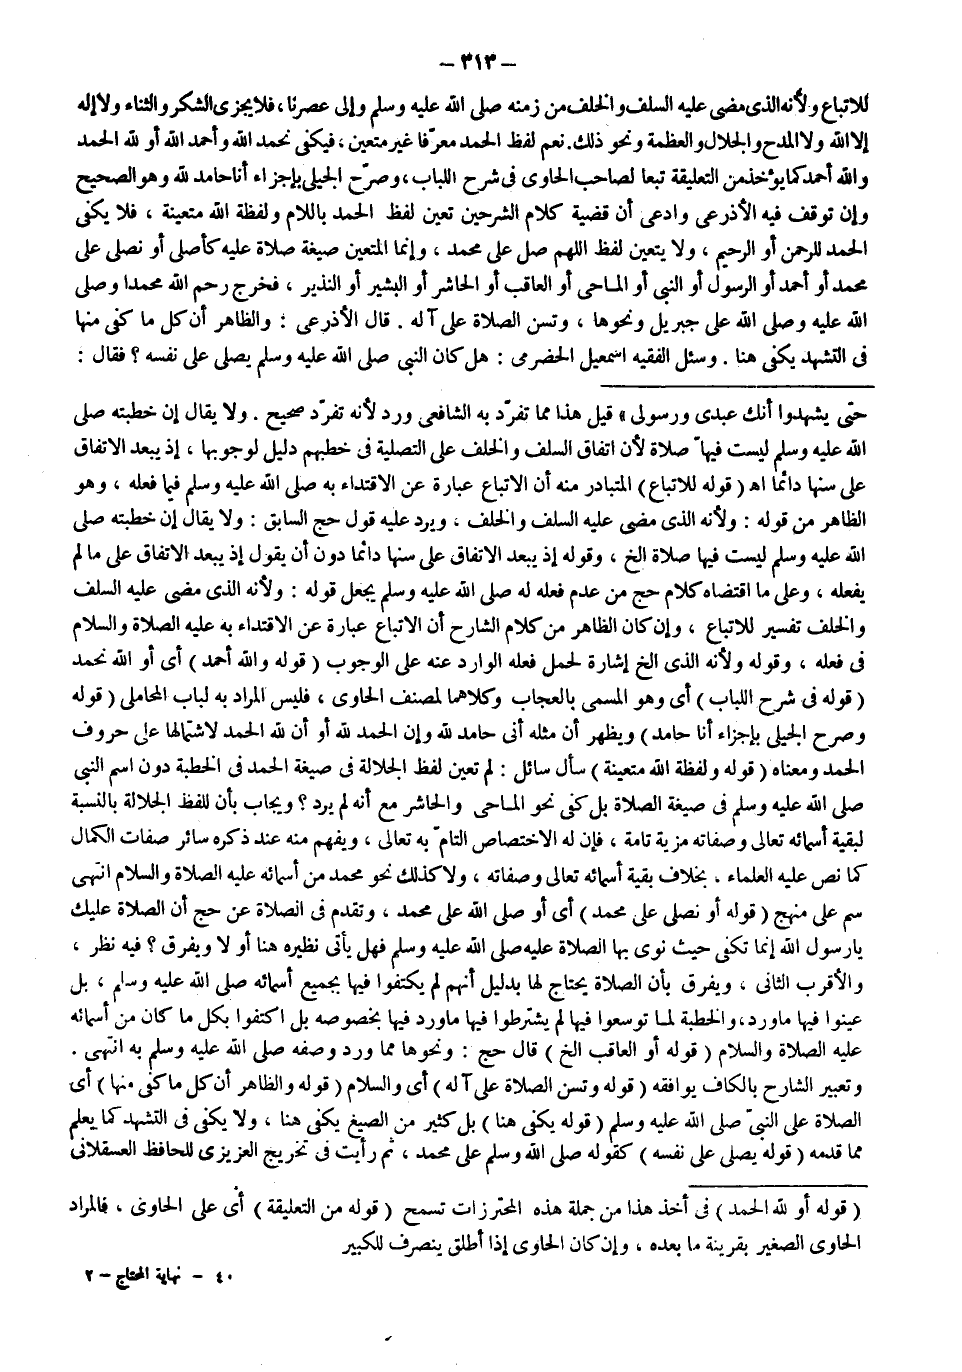 – ٣١٣ –
للاتباع ولأنه الذى مضى عليه السلف والخلف من زمنه صلى الله عليه وسلم وإلى عصرنا ، فلا يجزى الشكر والثناء ولا إله
إلا الله ولا المدح والجلال والعظمة ونحو ذلك . نعم لفظ الحمد معرّفا غير متعين ، فيكفى نحمد الله وأحمد الله أو لله الحمد
والله أحمد كما يؤخذ من التعليقة تبعا لصاحب الحاوى فى شرح اللباب ، وصرّح الجيلى بإجزاء أنا حامد لله وهو الصحيح
وإن توقف فيه الأذرعى وادعى أن قضية كلام الشرحين تعين لفظ الحمد باللام ولفظة الله متعينة ، فلا يكفى
الحمد للرحمن أو الرحيم ، ولا يتعين لفظ اللهم صل على محمد ، وإنما المتعين صيغة صلاة عليه كأصلى أو نصلى على
محمد أو أحمد أو الرسول أو النبى أو الماحى أو العاقب أو الحاشر أو البشير أو النذير ، فخرج رحم الله محمدا وصلى
الله عليه وصلى الله على جبريل ونحوها ، وتسن الصلاة على آله . قال الأذرعى : والظاهر أن كل ما كفى منها
فى التشهد يكفى هنا . وسئل الفقيه اسمعيل الحضرمى : هل كان النبى صلى الله عليه وسلم يصلى على نفسه ؟ فقال :
حتى يشهدوا أنك عبدى ورسولى » قيل هذا مما تفرّد به الشافعى ورد لأنه تفرّد صحيح . ولا يقال إن خطبته صلى
الله عليه وسلم ليست فيها صلاة لأن اتفاق السلف والخلف على التصلية فى خطبهم دليل لوجوبها ، إذ يبعد الاتفاق
على سنها دائما اه ( قوله للاتباع ) المتبادر منه أن الاتباع عبارة عن الاقتداء به صلى الله عليه وسلم فيما فعله ، وهو
الظاهر من قوله : ولأنه الذى مضى عليه السلف والخلف ، ويرد عليه قول حج السابق : ولا يقال إن خطبته صلى
الله عليه وسلم ليست فيها صلاة الخ ، وقوله إذ يبعد الاتفاق على سنها دائما دون أن يقول إذ يبعد الاتفاق على ما لم
يفعله ، وعلى ما اقتضاه كلام حج من عدم فعله له صلى الله عليه وسلم يجعل قوله : ولأنه الذى مضى عليه السلف
والخلف تفسير للاتباع ، وإن كان الظاهر من كلام الشارح أن الاتباع عبارة عن الاقتداء به عليه الصلاة والسلام
فى فعله ، وقوله ولأنه الذى الخ إشارة لحمل فعله الوارد عنه على الوجوب ( قوله والله أحمد ) أى أو الله نحمد
( قوله فى شرح اللباب ) أى وهو المسمى بالعجاب وكلاهما لمصنف الحاوى ، فليس المراد به لباب المحاملى ( قوله
وصرح الجيلى بإجزاء أنا حامد ) ويظهر أن مثله أنى حامد لله وإن الحمد لله أو أن لله الحمد لاشتمالها على حروف
الحمد ومعناه ( قوله ولفظة الله متعينة ) سأل سائل : لم تعين لفظ الجلالة فى صيغة الحمد فى الخطبة دون اسم النبى
صلى الله عليه وسلم فى صيغة الصلاة بل كفى نحو الماحى والحاشر مع أنه لم يرد ؟ ويجاب بأن للفظ الجلالة بالنسبة
لبقية أسمائه تعالى وصفاته مزية تامة ، فإن له الاختصاص التامّ به تعالى ، ويفهم منه عند ذكره سائر صفات الكمال
كما نص عليه العلماء ، بخلاف بقية أسمائه تعالى وصفاته ، ولا كذلك نحو محمد من أسمائه عليه الصلاة والسلام انتهى
سم على منهج ( قوله أو نصلى على محمد ) أى أو صلى الله على محمد ، وتقدم فى الصلاة عن حج أن الصلاة عليك
يارسول الله إنما تكفى حيث نوى بها الصلاة عليه صلى الله عليه وسلم فهل يأتى نظيره هنا أو لا ويفرق ؟ فيه نظر ،
والأقرب الثانى ، ويفرق بأن الصلاة يحتاج لها بدليل أنهم لم يكتفوا فيها بجميع أسمائه صلى الله عليه وسلم ، بل
عينوا فيها ماورد ، والخطبة لما توسعوا فيها لم يشترطوا فيها ماورد فيها بخصوصه بل اكتفوا بكل ما كان من أسمائه
عليه الصلاة والسلام ( قوله أو العاقب الخ ) قال حج : ونحوها مما ورد وصفه صلى الله عليه وسلم به انتهى .
وتعبير الشارح بالكاف يوافقه ( قوله وتسن الصلاة على آله ) أى والسلام ( قوله والظاهر أن كل ما كفى منها ) أى
الصلاة على النبىّ صلى الله عليه وسلم ( قوله يكفى هنا ) بل كثير من الصيغ يكفى هنا ، ولا يكفى فى التشهد كما يعلم
مما قدمه ( قوله يصلى على نفسه ) كقوله صلى الله وسلم على محمد ، ثم رأيت فى تخريج العزيزى للحافظ العسقلانى
( قوله أو لله الحمد ) فى أخذ هذا من جملة هذه المحترزات تسمح ( قوله من التعليقة ) أى على الحاوى ، فالمراد
الحاوى الصغير بقرينة ما بعده ، وإن كان الحاوى إذا أطلق ينصرف للكبير
٤٠ – نهاية المحتاج – ٢